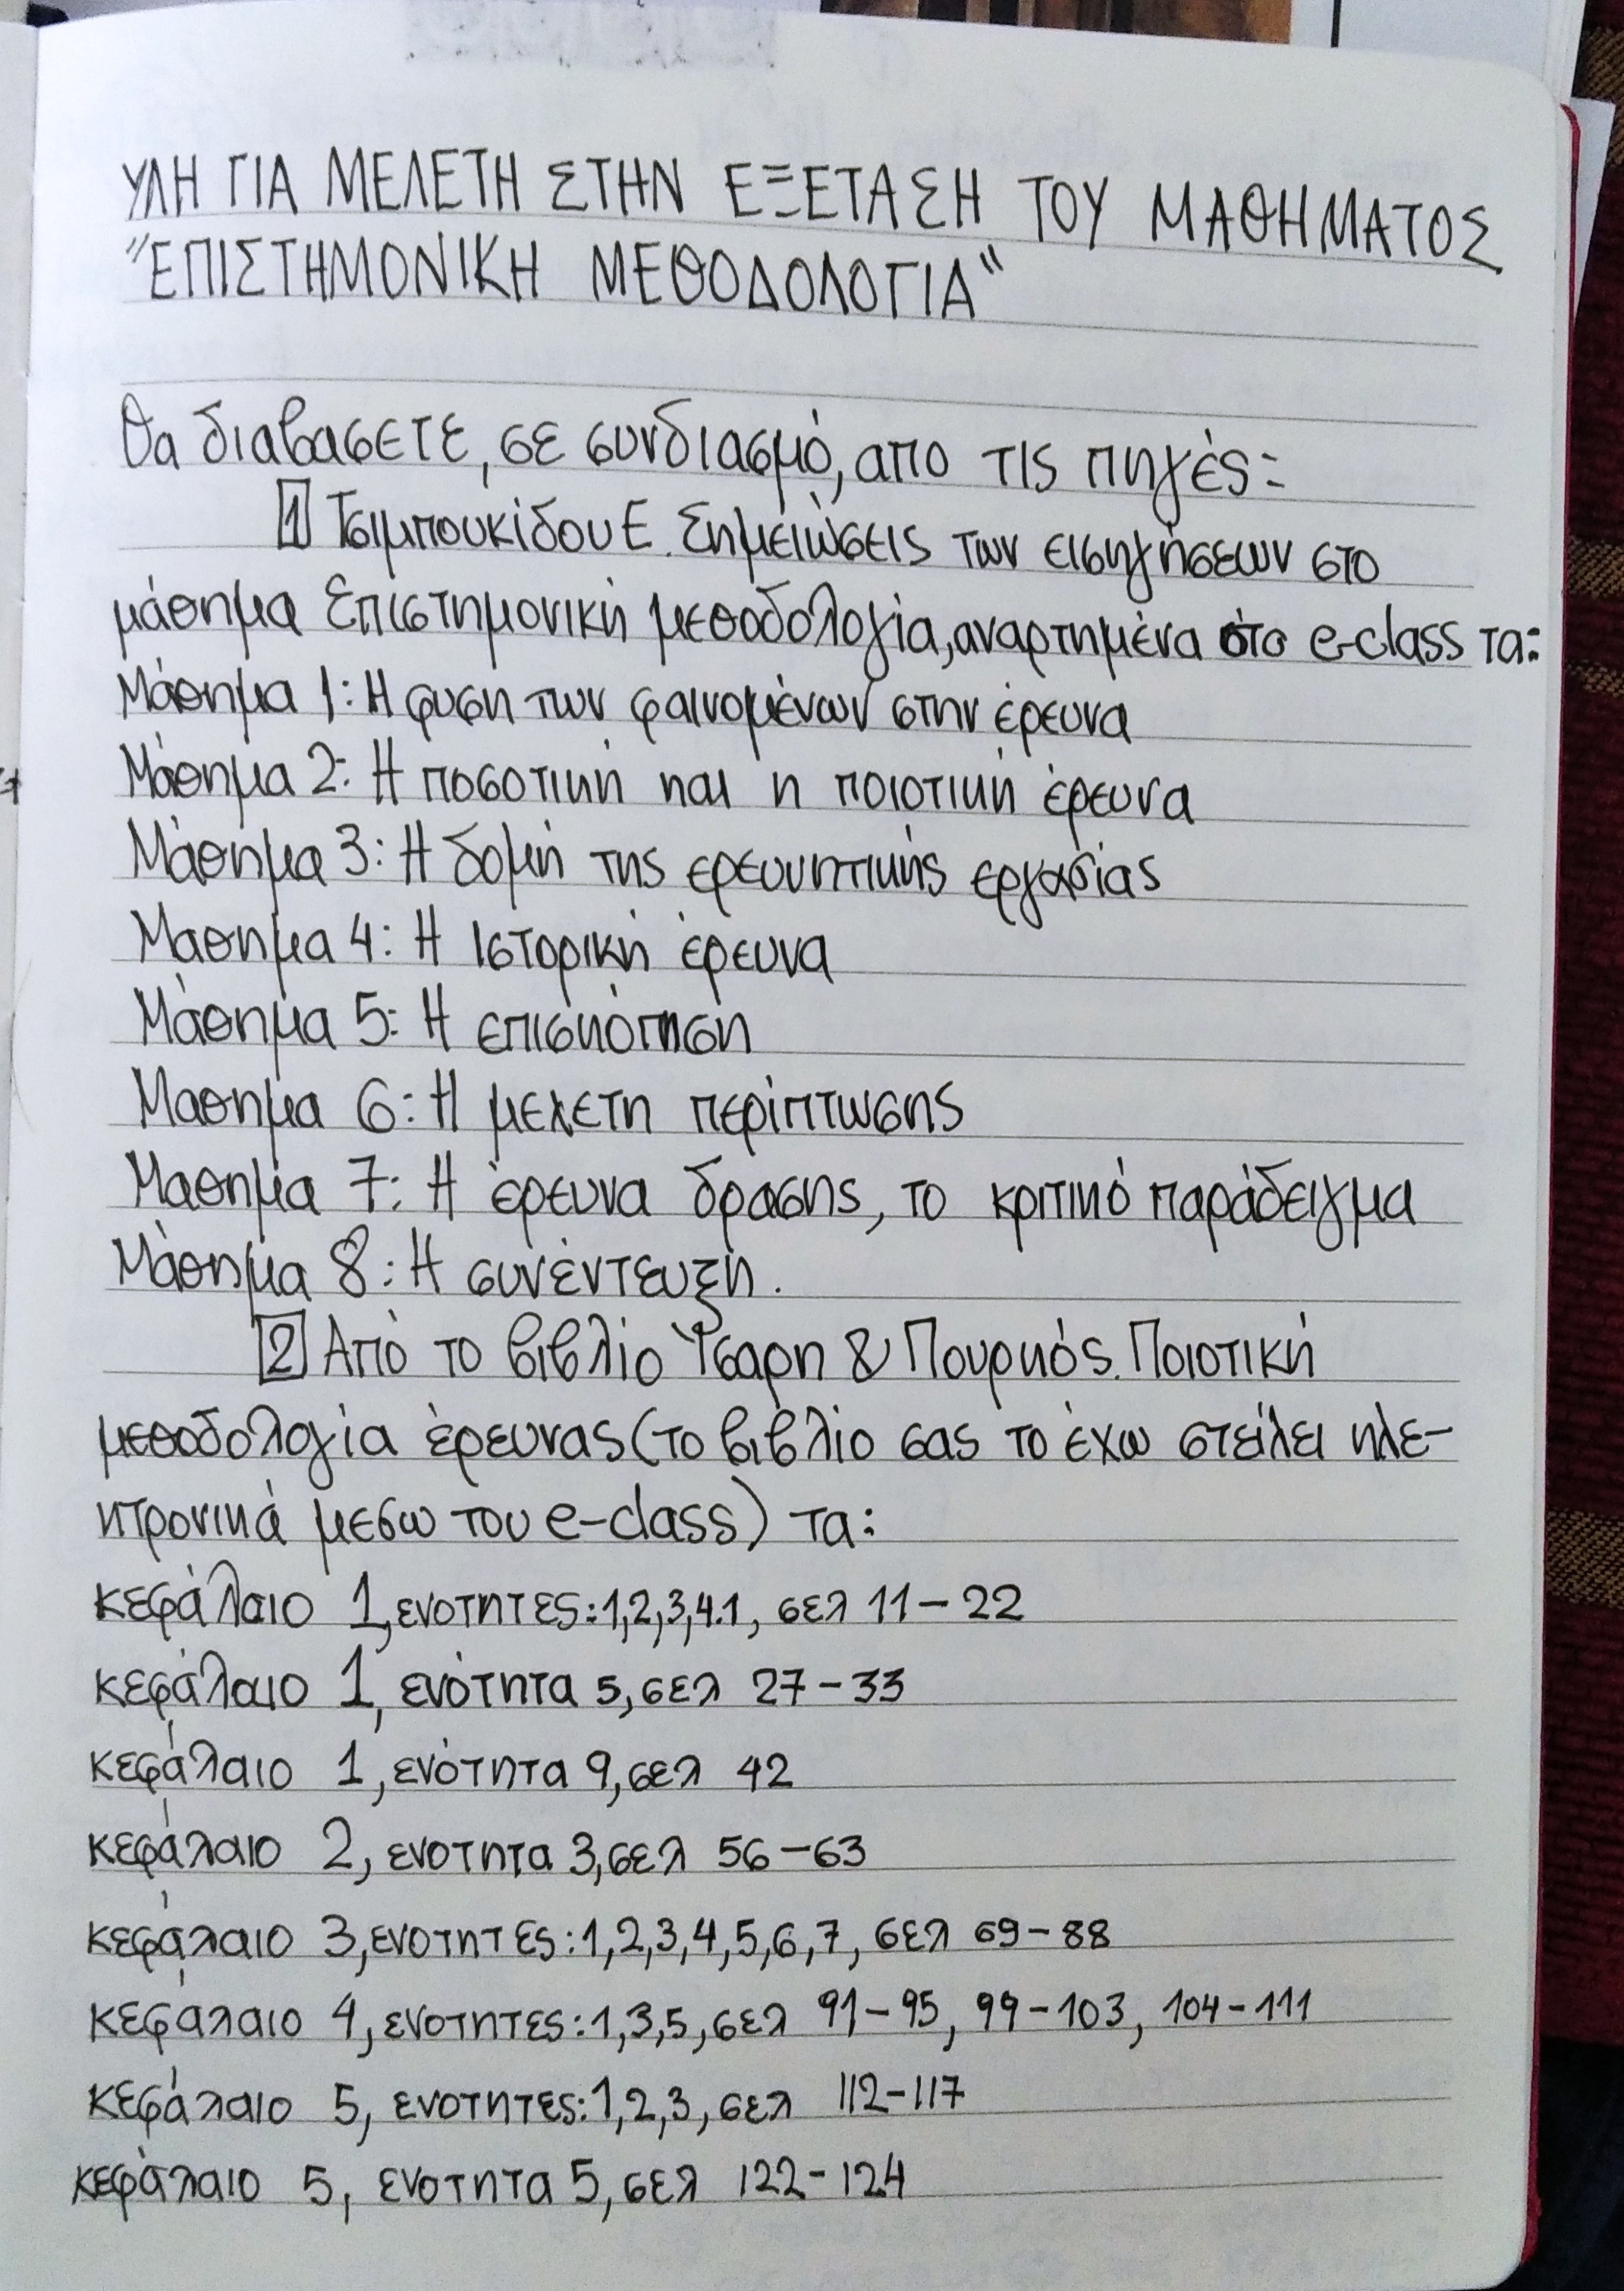 ΥΛΗ ΓΙΑ ΜΕΛΕΤΗ ΣΤΗΝ ΕΞΕΤΑΣΗ ΤΟΥ ΜΑΘΗΜΑΤΟΣ
"ΕΠΙΣΤΗΜΟΝΙΚΗ ΜΕΘΟΔΟΛΟΓΙΑ"
θα διαβασετε, σε συνδιασμό, απο τις πηγές:
1 Τσιμπουκίδου Ε. Σημειώσεις των εισηγήσεων στο
μάθημα Επιστημονική μεθοδολογία, αναρτημένα στο e-class τα:
Μάθημα 1: Η φυση των φαινομένων στην έρευνα
Μάθημα 2: Η ποσοτική και η ποιοτική έρευνα
Μάθημα 3: Η δομή της ερευνητικής εργασίας
Μάθημα 4: Η Ιστορική έρευνα
Μάθημα 5: Η επισκόπηση
Μαθημα 6: Η μελετη περίπτωσης
Μαθημα 7: Η έρευνα δρασης, το κριτικό παράδειγμα
Μάθημα 8: Η συνέντευξη.
2 Από το βιβλίο Ίσαρη & Πουρκός. Ποιοτική
μεθοδολογία έρευνας (το βιβλίο σας το έχω στείλει ηλε-
κτρονικά μεσω του e-class) τα:
κεφάλαιο 1, ενοτητες: 1,2,3,4.1, σελ 11-22
κεφάλαιο 1, ενότητα 5, σελ 27-33
κεφάλαιο 1, ενότητα 9, σελ 42
κεφάλαιο 2, ενοτητα 3, σελ 56-63
κεφάλαιο 3, ενοτητες: 1,2,3,4,5,6,7, σελ 69-88
κεφάλαιο 4, ενοτητες: 1,3,5, σελ 91-95, 99-103, 104-111
κεφάλαιο 5, ενοτητες: 1,2,3, σελ 112-117
κεφάλαιο 5, ενοτητα 5, σελ 122-124